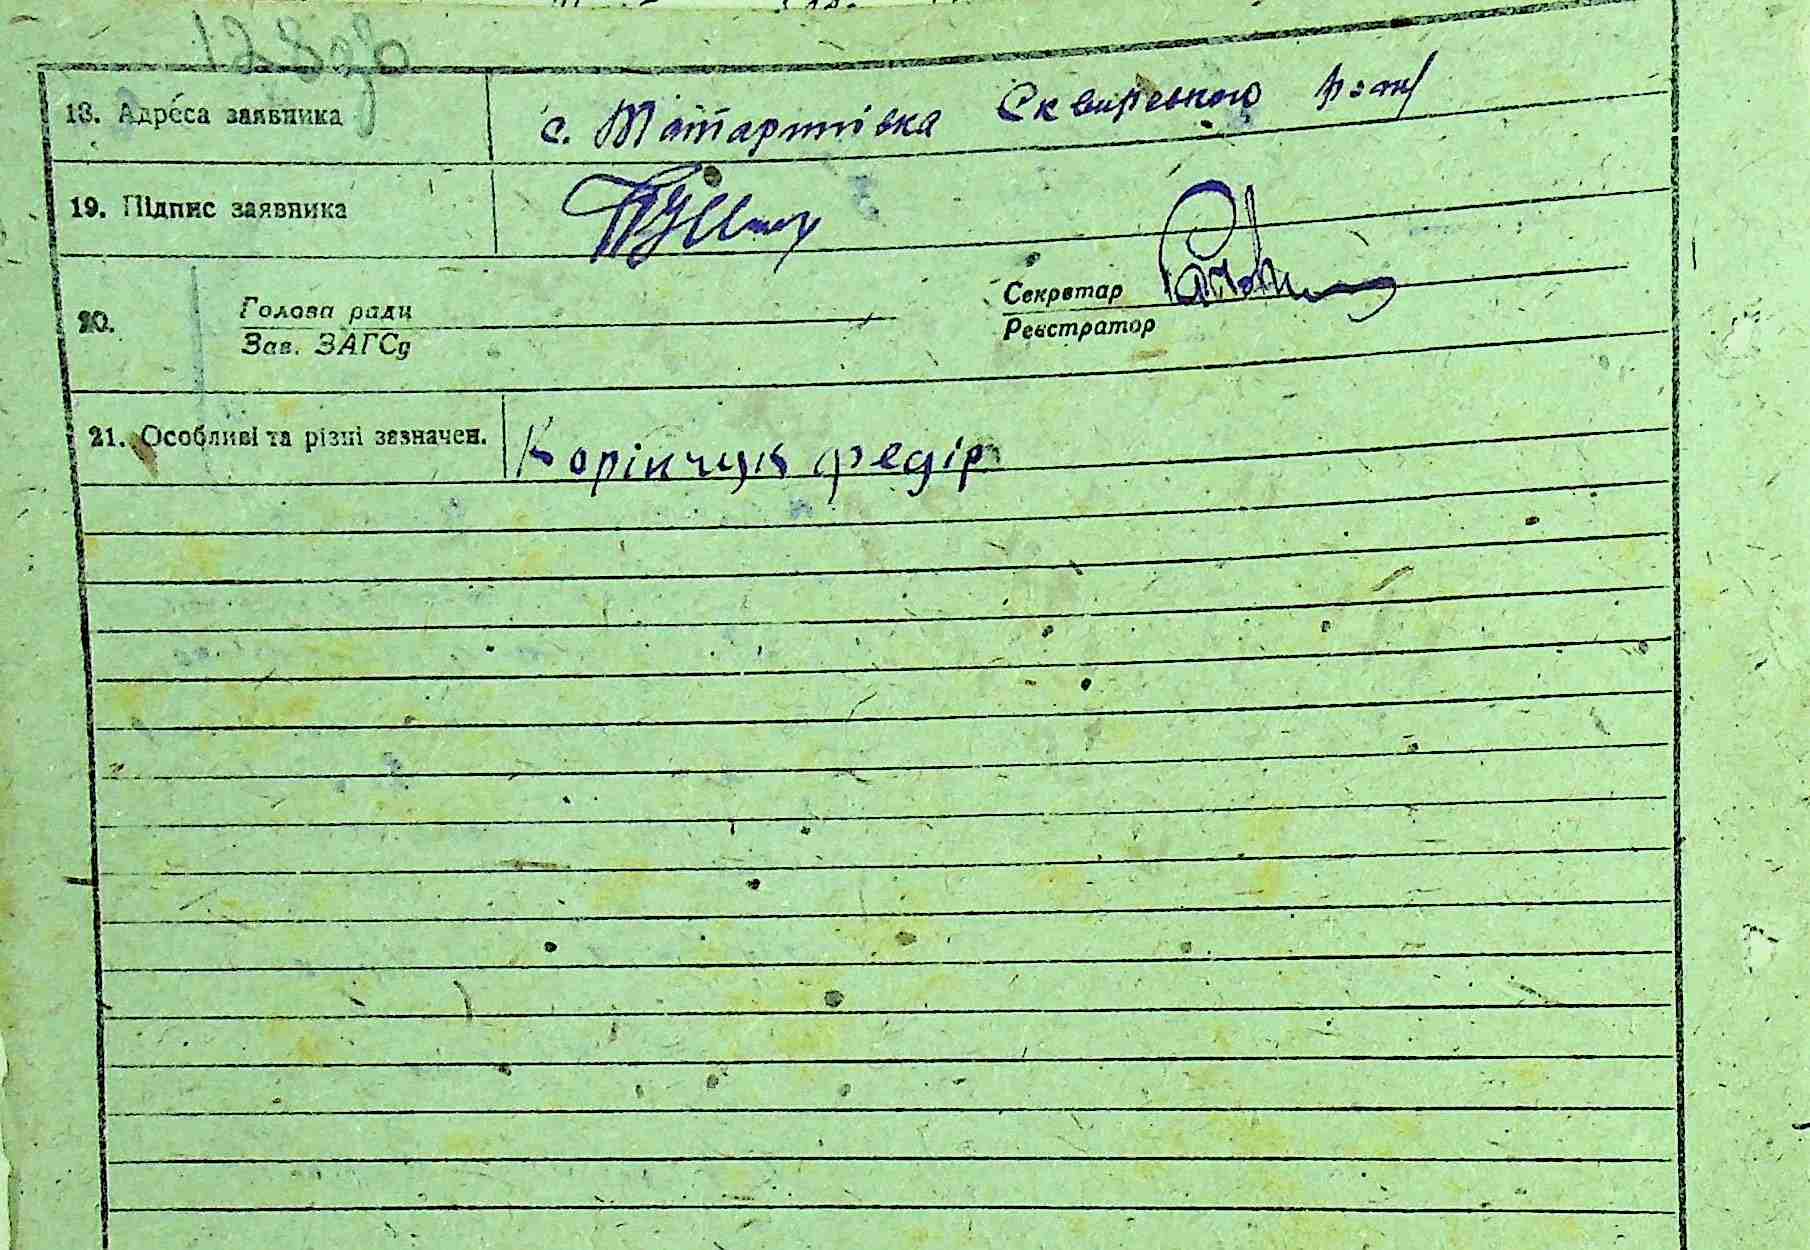 18. Адреса заявника с. Татаринівка Сквирського р-ну
19. Підпис заявника
20. Голова ради Секретар
Зав. ЗАГСу Реєстратор
21. Особливі та різні зазначен. Корінчук федір